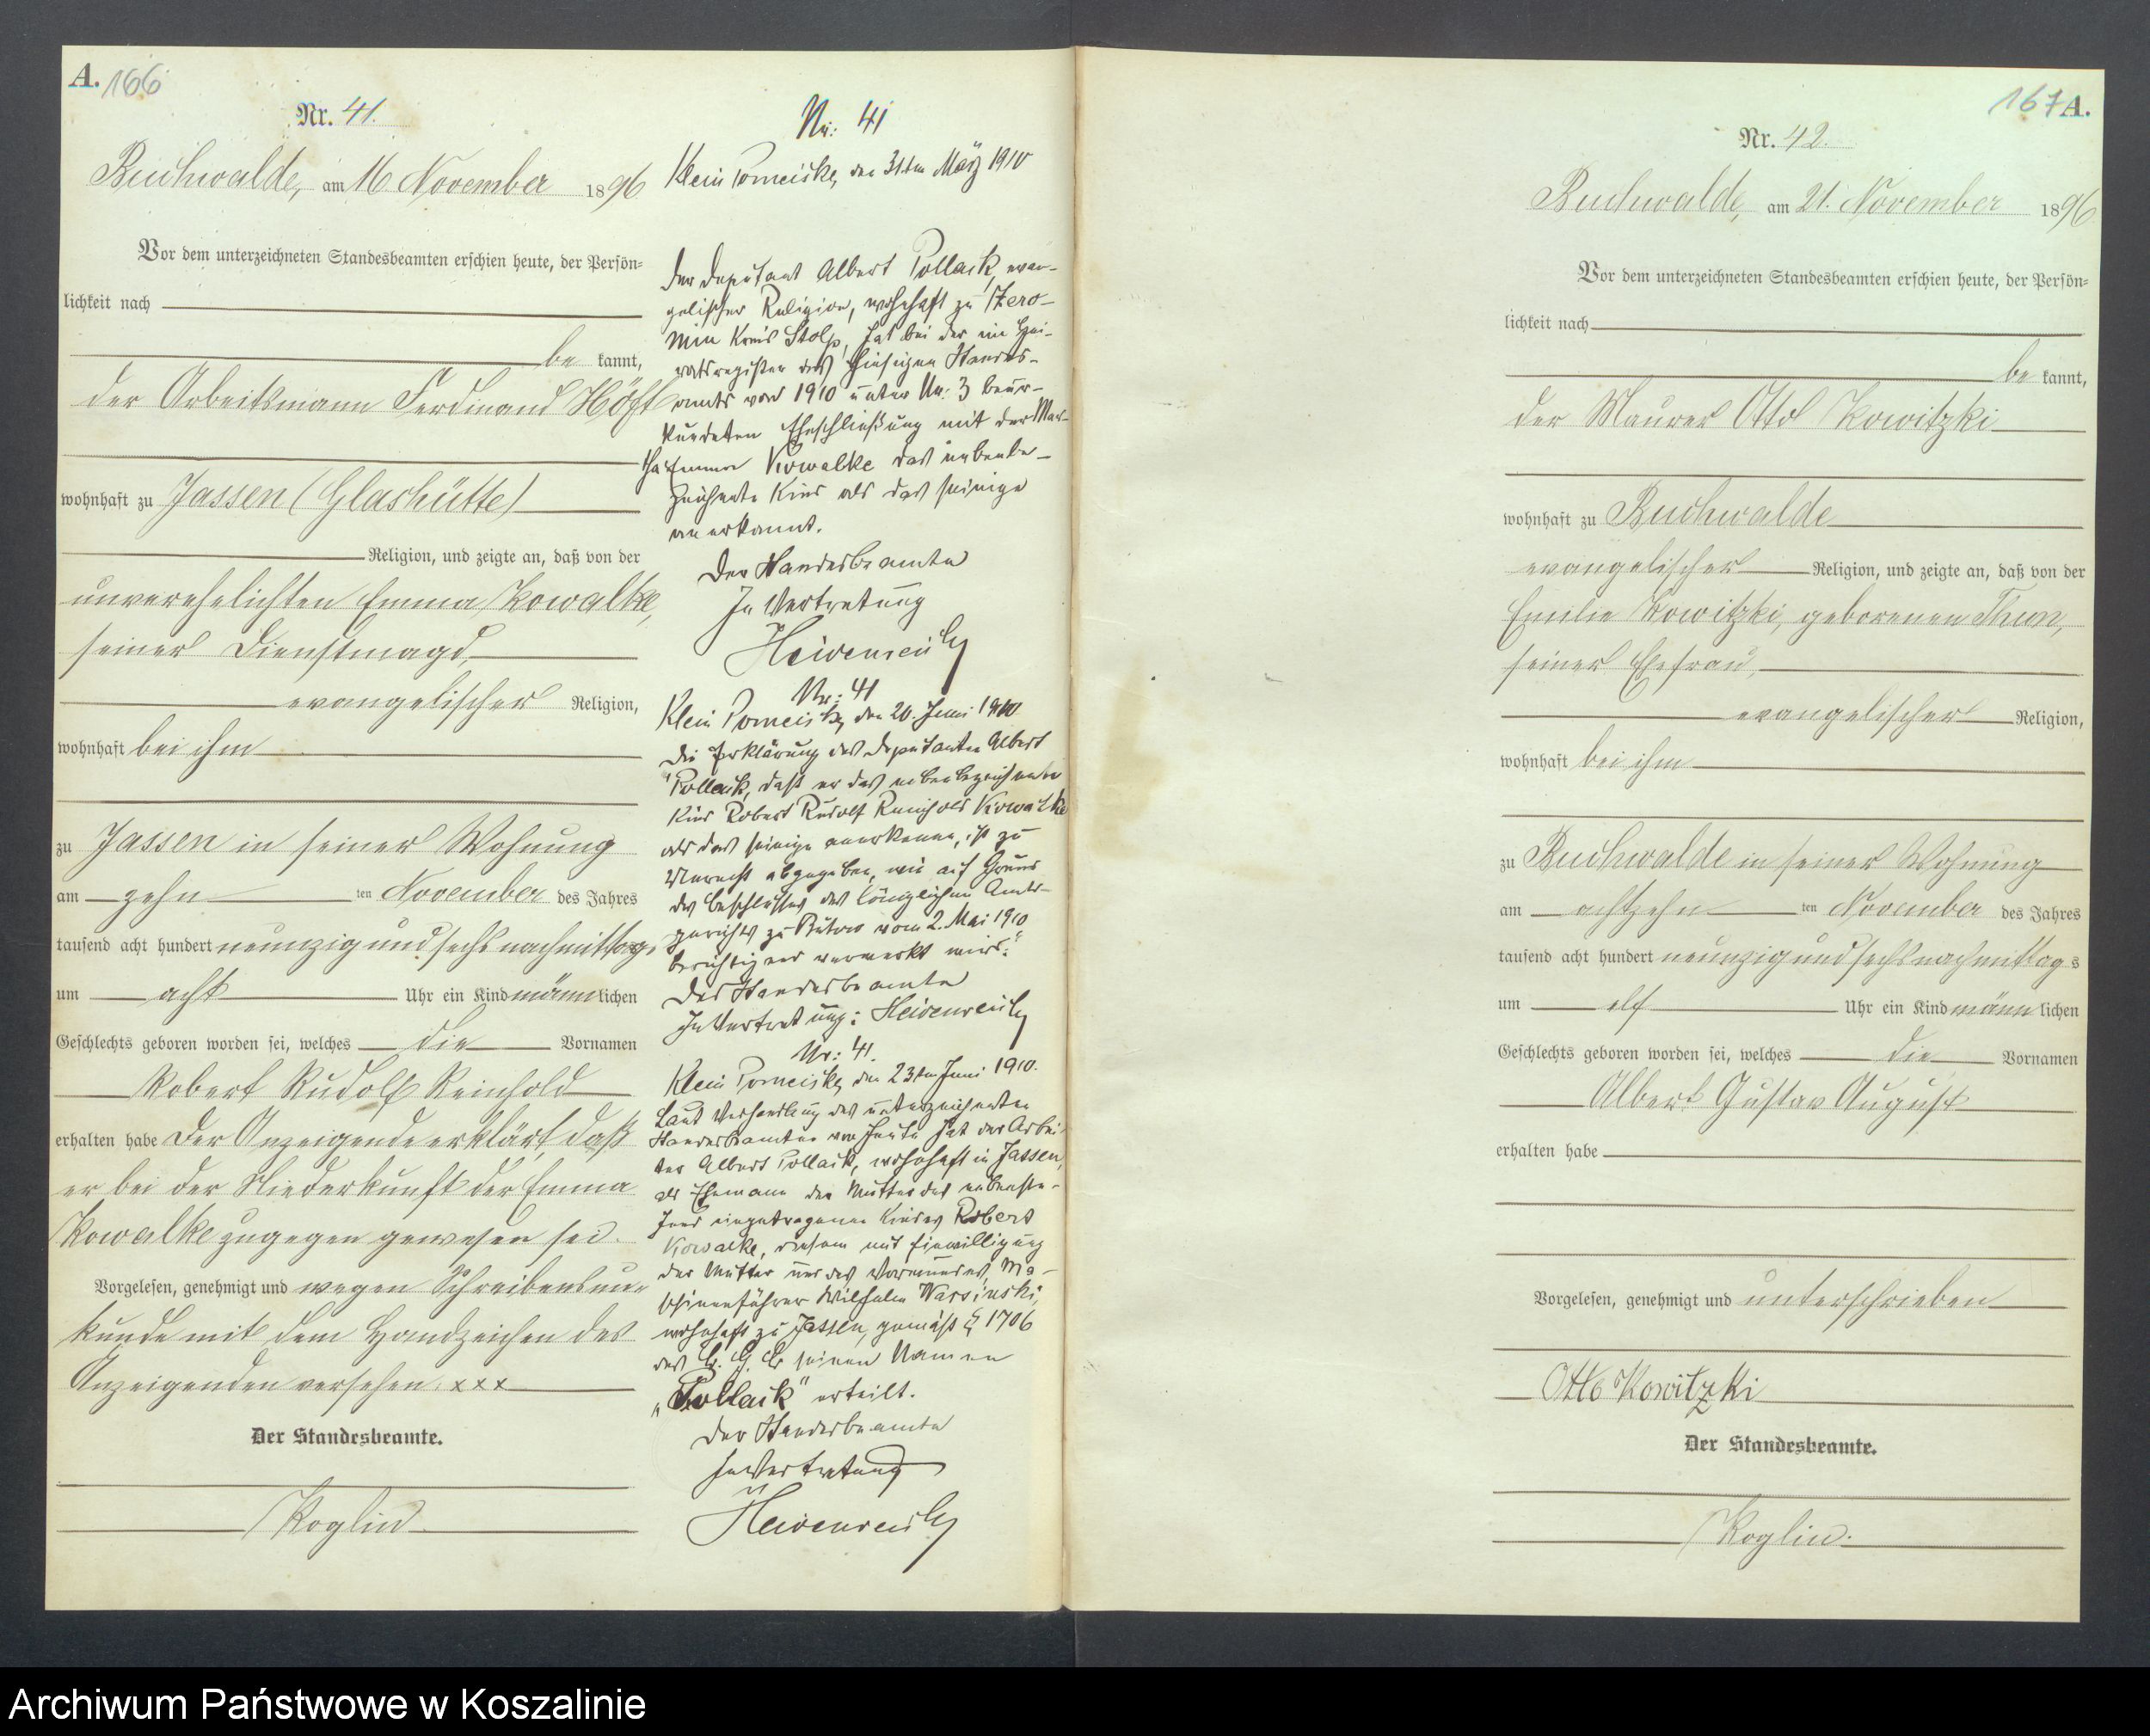 A. 166
Nr. 41.
Buchwalde, am 16 November 1896
Vor dem unterzeichneten Standesbeamten erschien heute, der Persön-
lichkeit nach
be kannt,
der Arbeitsmann Ferdinand Höft
wohnhaft zu Jassen (Glashütte)
Religion, und zeigte an, daß von der
unverehelichten Emma Kowalke,
seiner Dienstmagd,
evangelischer Religion,
wohnhaft bei ihm
zu Jassen in seiner Wohnung
am zehn ten November des Jahres
tausend acht hundert neunzig und sechs nachmittags
um acht Uhr ein Kind männlichen
Geschlechts geboren worden sei, welches die Vornamen
Robert Rudolf Reinhold
erhalten habe Der Anzeigende erklärt, daß
er bei der Niederkunft der Emma
Kowalke zugegen gewesen sei.
Vorgelesen, genehmigt und wegen Schreibensun-
kunde mit dem Handzeichen des
Anzeigenden versehen. xxx
Der Standesbeamte.
Koglin.
Nr: 41
Klein Pomeiske, den 31ten März 1910
Der Deputant Albert Pollack, evan-
gelischer Religion, wohnhaft zu
Kreis Stolp, hat bei der im Hei-
ratsregister des hiesigen Standes-
amts von 1910 unter Nr: 3 beur-
kundeten Eheschließung mit der Mar-
tha Emma Kowalke das nebenbe-
zeichnete Kind als das seinige
anerkannt.
Der Standesbeamte
In Vertretung
Heidenreich
Nr: 41
Klein Pomeiske, den 20. Juni 1910
Die Erklärung des Deputanten Albert
Pollack, daß er das nebenbezeichnete
Kind Robert Rudolf Reinhold Kowalke
als das seinige anerkenne, ist zu
Unrecht abgegeben, wie auf Grund
des Beschlusses des Königlichen Amts-
gerichts zu Bütow vom 2. Mai 1910
berichtigend vermerkt wird."
Der Standesbeamte
In Vertretung: Heidenreich
Nr: 41.
Klein Pomeiske, den 23ten Juni 1910.
Laut Verhandlung des unterzeichneten
Standesbeamten von heute hat der Arbei-
ter Albert Pollack, wohnhaft in Jassen,
als Ehemann der Mutter des nebenste-
hend eingetragenen Kindes Robert
Kowalke, diesem mit Einwilligung
der Mutter und des Vormundes, Ma-
schinenführer Wilhelm Warsinski,
wohnhaft zu Jassen, gemäß § 1706
des B. G. B seinen Namen
„Pollack" erteilt.
Der Standesbeamte
In Vertretung
Heidenreich
167 A.
Nr. 42.
Buchwalde, am 21. November 1896
Vor dem unterzeichneten Standesbeamten erschien heute, der Persön-
lichkeit nach
be kannt,
der Maurer Otto Kowitzki
wohnhaft zu Buchwalde
evangelischer Religion, und zeigte an, daß von der
Emilie Kowitzki, geborenen Thun,
seiner Ehefrau,
evangelischer Religion,
wohnhaft bei ihm
zu Buchwalde in seiner Wohnung
am achtzehn ten November des Jahres
tausend acht hundert neunzig und sechs nachmittags
um elf Uhr ein Kind männlichen
Geschlechts geboren worden sei, welches die Vornamen
Albert Gustav August
erhalten habe
Vorgelesen, genehmigt und unterschrieben
Otto Kowitzki
Der Standesbeamte.
Koglin.
Archiwum Państwowe w Koszalinie